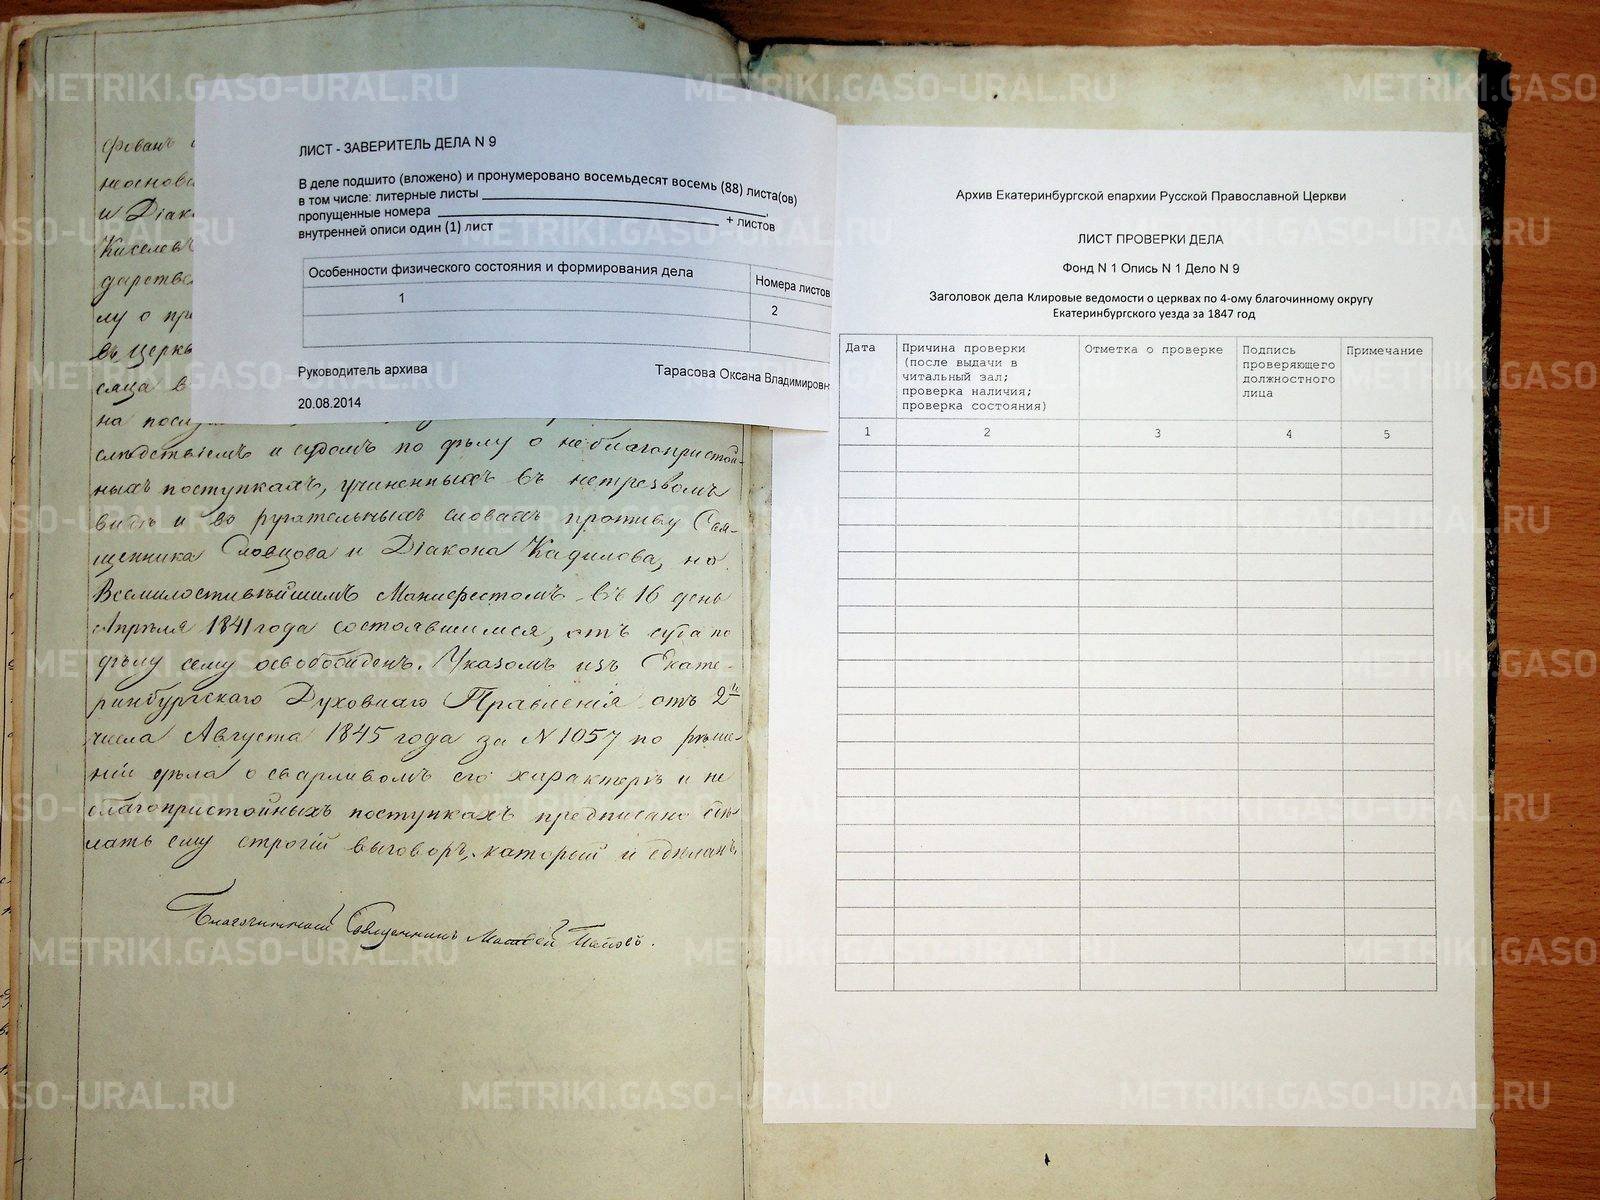 фованъ
неоснова
и Діак
Киселевъ
дарстве
лу о пр
въ церкв
сяца в
на послу
слѣдствіемъ и судомъ по дѣлу о неблагопристой-
ныхъ поступкахъ, учиненныхъ въ нетрезвомъ
видѣ и во ругательныхъ словахъ противу Свя-
щенника Словцова и Діакона Кадилова, но
Всемилостивѣйшимъ Манифестомъ въ 16 день
Апрѣля 1841 года состоявшимся, отъ суда по
дѣлу сему освобожденъ. Указомъ изъ Екате-
ринбургскаго Духовнаго Правленія отъ 2го
числа Августа 1845 года за N 1057 по рѣше-
ніи дѣла о сварливомъ его характерѣ и не
благопристойныхъ поступкахъ предписано сдѣ
лать ему строгій выговоръ, который и сдѣланъ.
Благочинный Священникъ Матвей Поповъ.
ЛИСТ - ЗАВЕРИТЕЛЬ ДЕЛА N 9
В деле подшито (вложено) и пронумеровано восемьдесят восемь (88) листа(ов)
в том числе: литерные листы
пропущенные номера
+ листов
внутренней описи один (1) лист
Особенности физического состояния и формирования дела
Номера листов
1
2
Руководитель архива
Тарасова Оксана Владимировн
20.08.2014
Архив Екатеринбургской епархии Русской Православной Церкви
ЛИСТ ПРОВЕРКИ ДЕЛА
Фонд N 1 Опись N 1 Дело N 9
Заголовок дела Клировые ведомости о церквах по 4-ому благочинному округу
Екатеринбургского уезда за 1847 год
Дата
Причина проверки
(после выдачи в
читальный зал;
проверка наличия;
проверка состояния)
Отметка о проверке
Подпись
проверяющего
должностного
лица
Примечание
1 2 3 4 5
METRIKI.GASO-URAL.RU